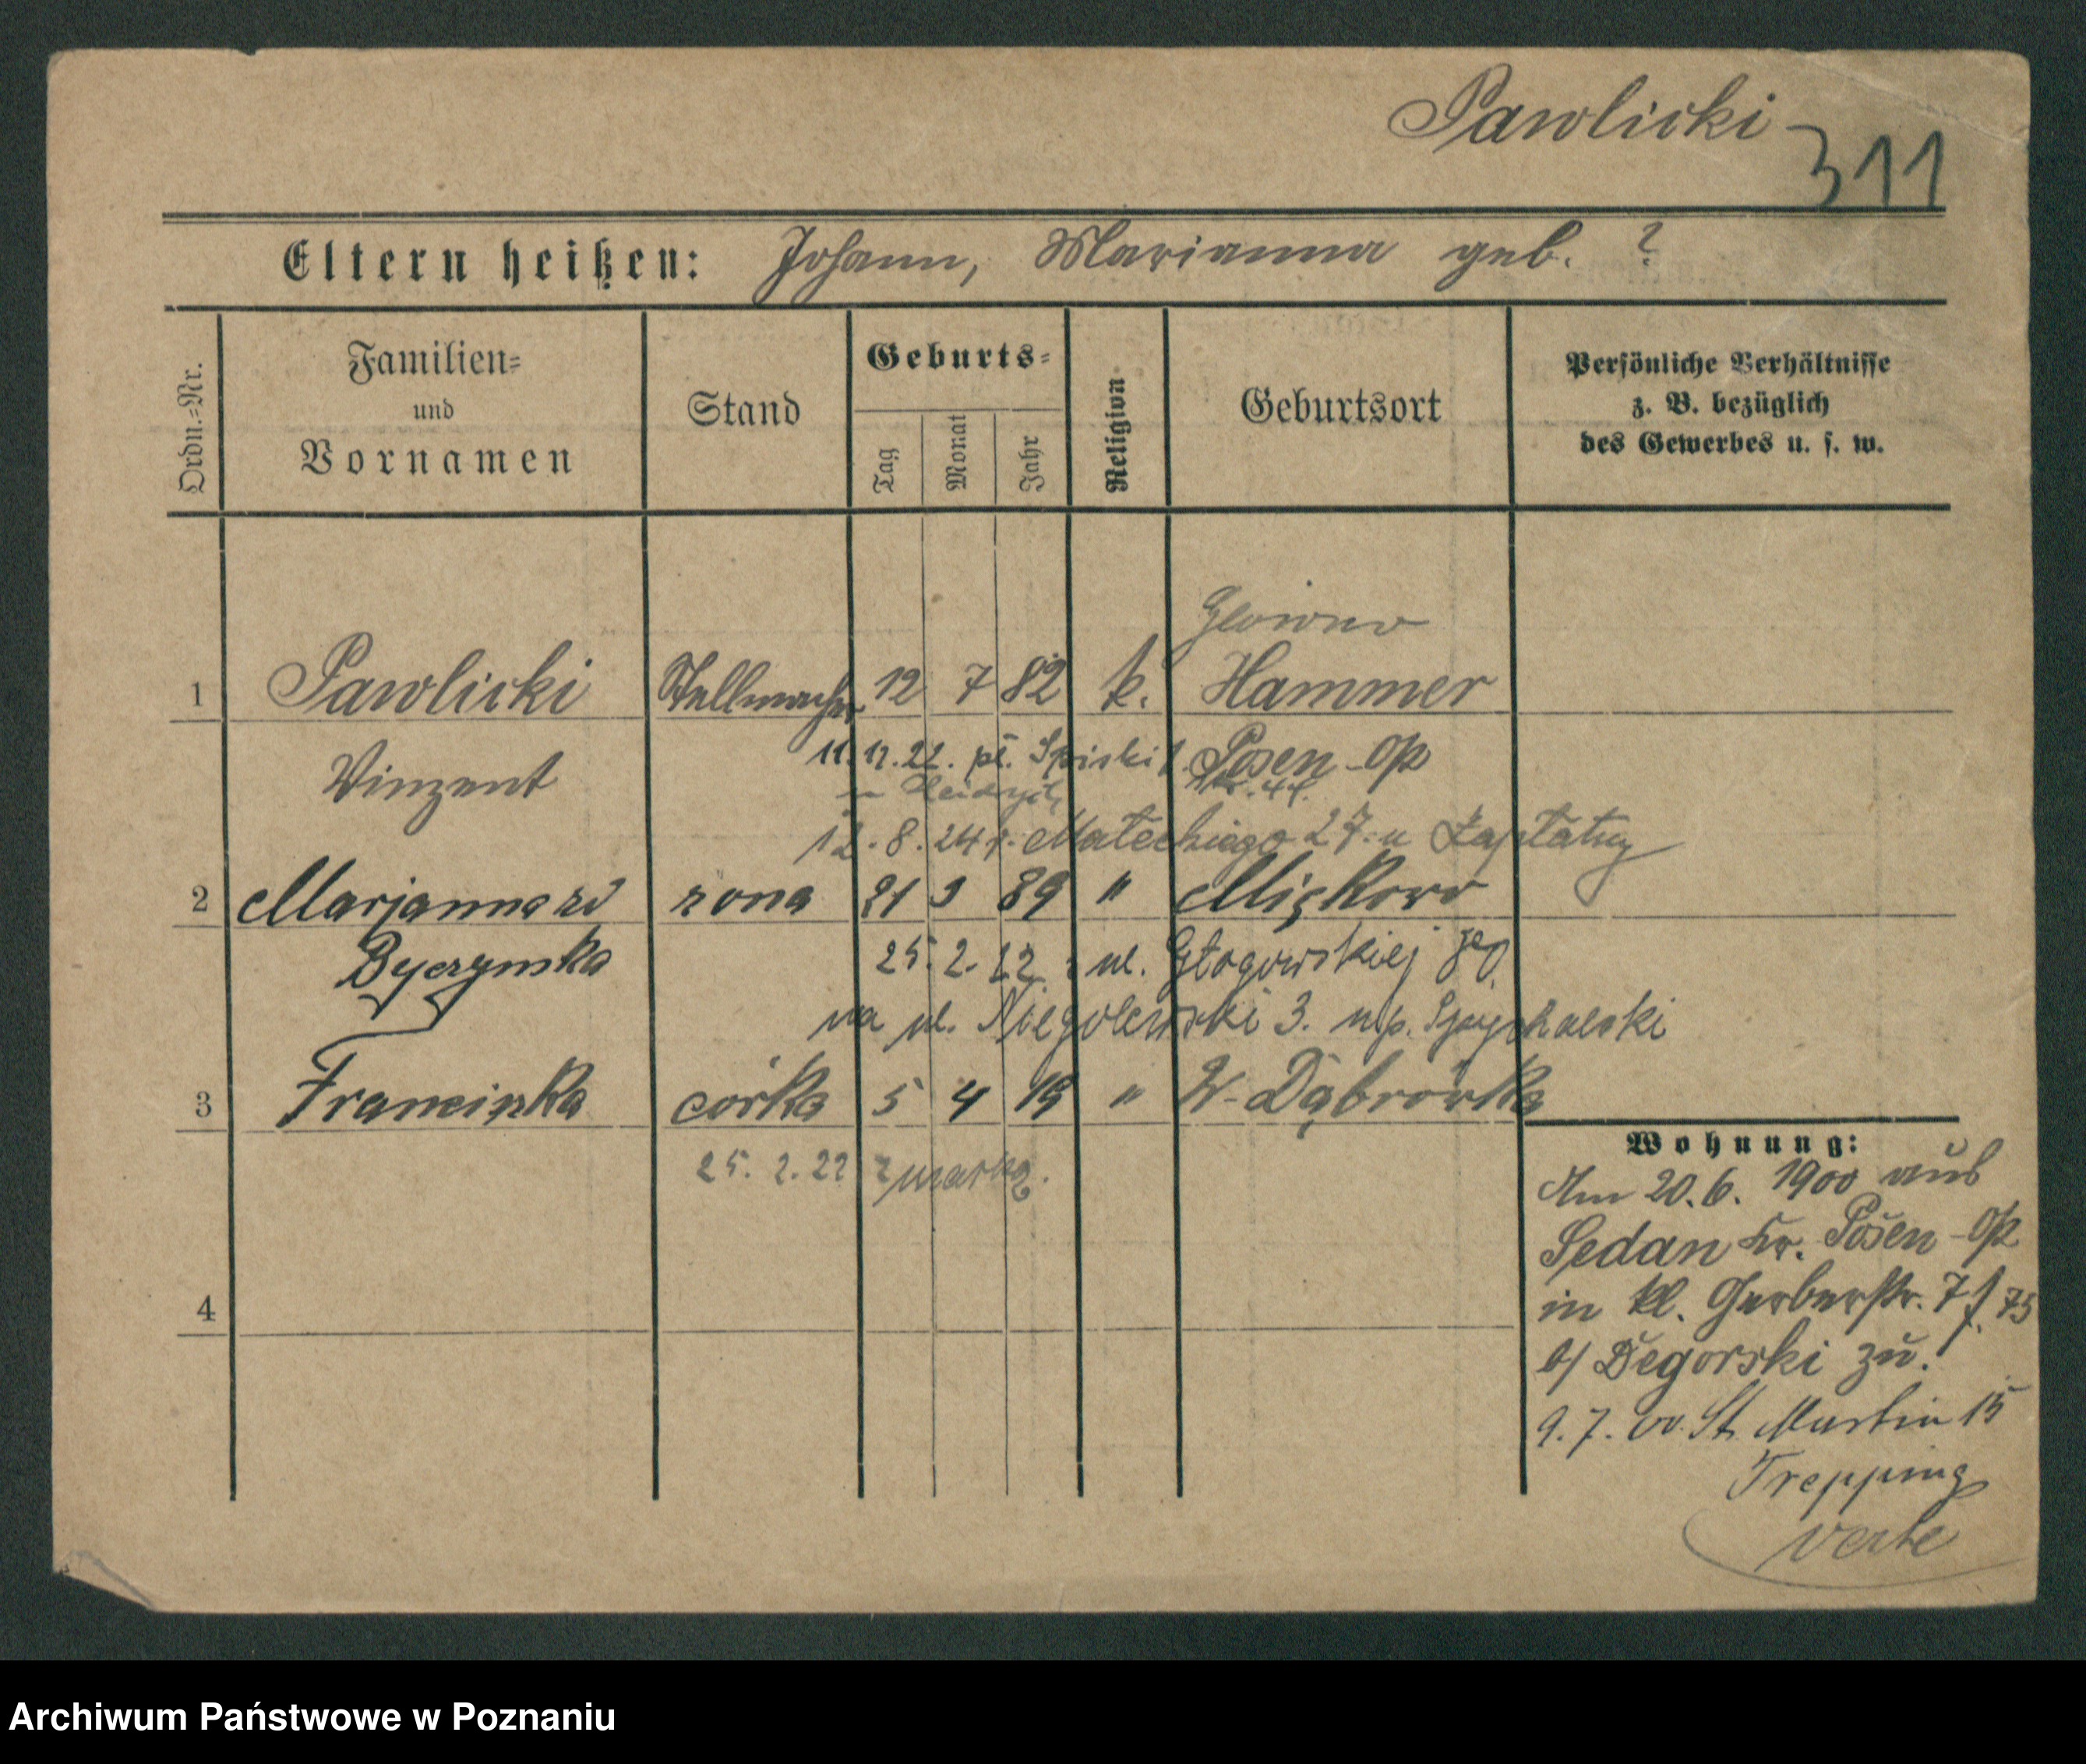 Pawlicki
311
Eltern heißen: Johann, Marianna geb. ?
Ordn.=Nr.
Familien=
und
Vornamen
Stand
Geburts=
Tag
Monat
Jahr
Religion
Geburtsort
Persönliche Verhältnisse
z. B. bezüglich
des Gewerbes u. s. w.
1 Pawlicki Stellmacher 12 7 82 k. Hammer
Winzent
11. 11. 22. pl. Posen-Op
12. 8. 24 r. Mateckiego 27. u
2 Marjanna zd żona 21 3 89 " Mięškowo
Byczynska
25. 2. 22 z ul. Głogowskiej
na ul. Niegolewski 3. u p. Spychalski
3 Franciszka córka 5 4 19 " W. Dąbrówka
25. 2. 22 zmarła.
4
Wohnung:
Am 20.6. 1900 aus
Sedan Kr. Posen-Op
in kl. Gerberstr. 7
b/ Degorski zu.
9. 7. 00. St. Martin 15
Trepping
verte
Archiwum Państwowe w Poznaniu